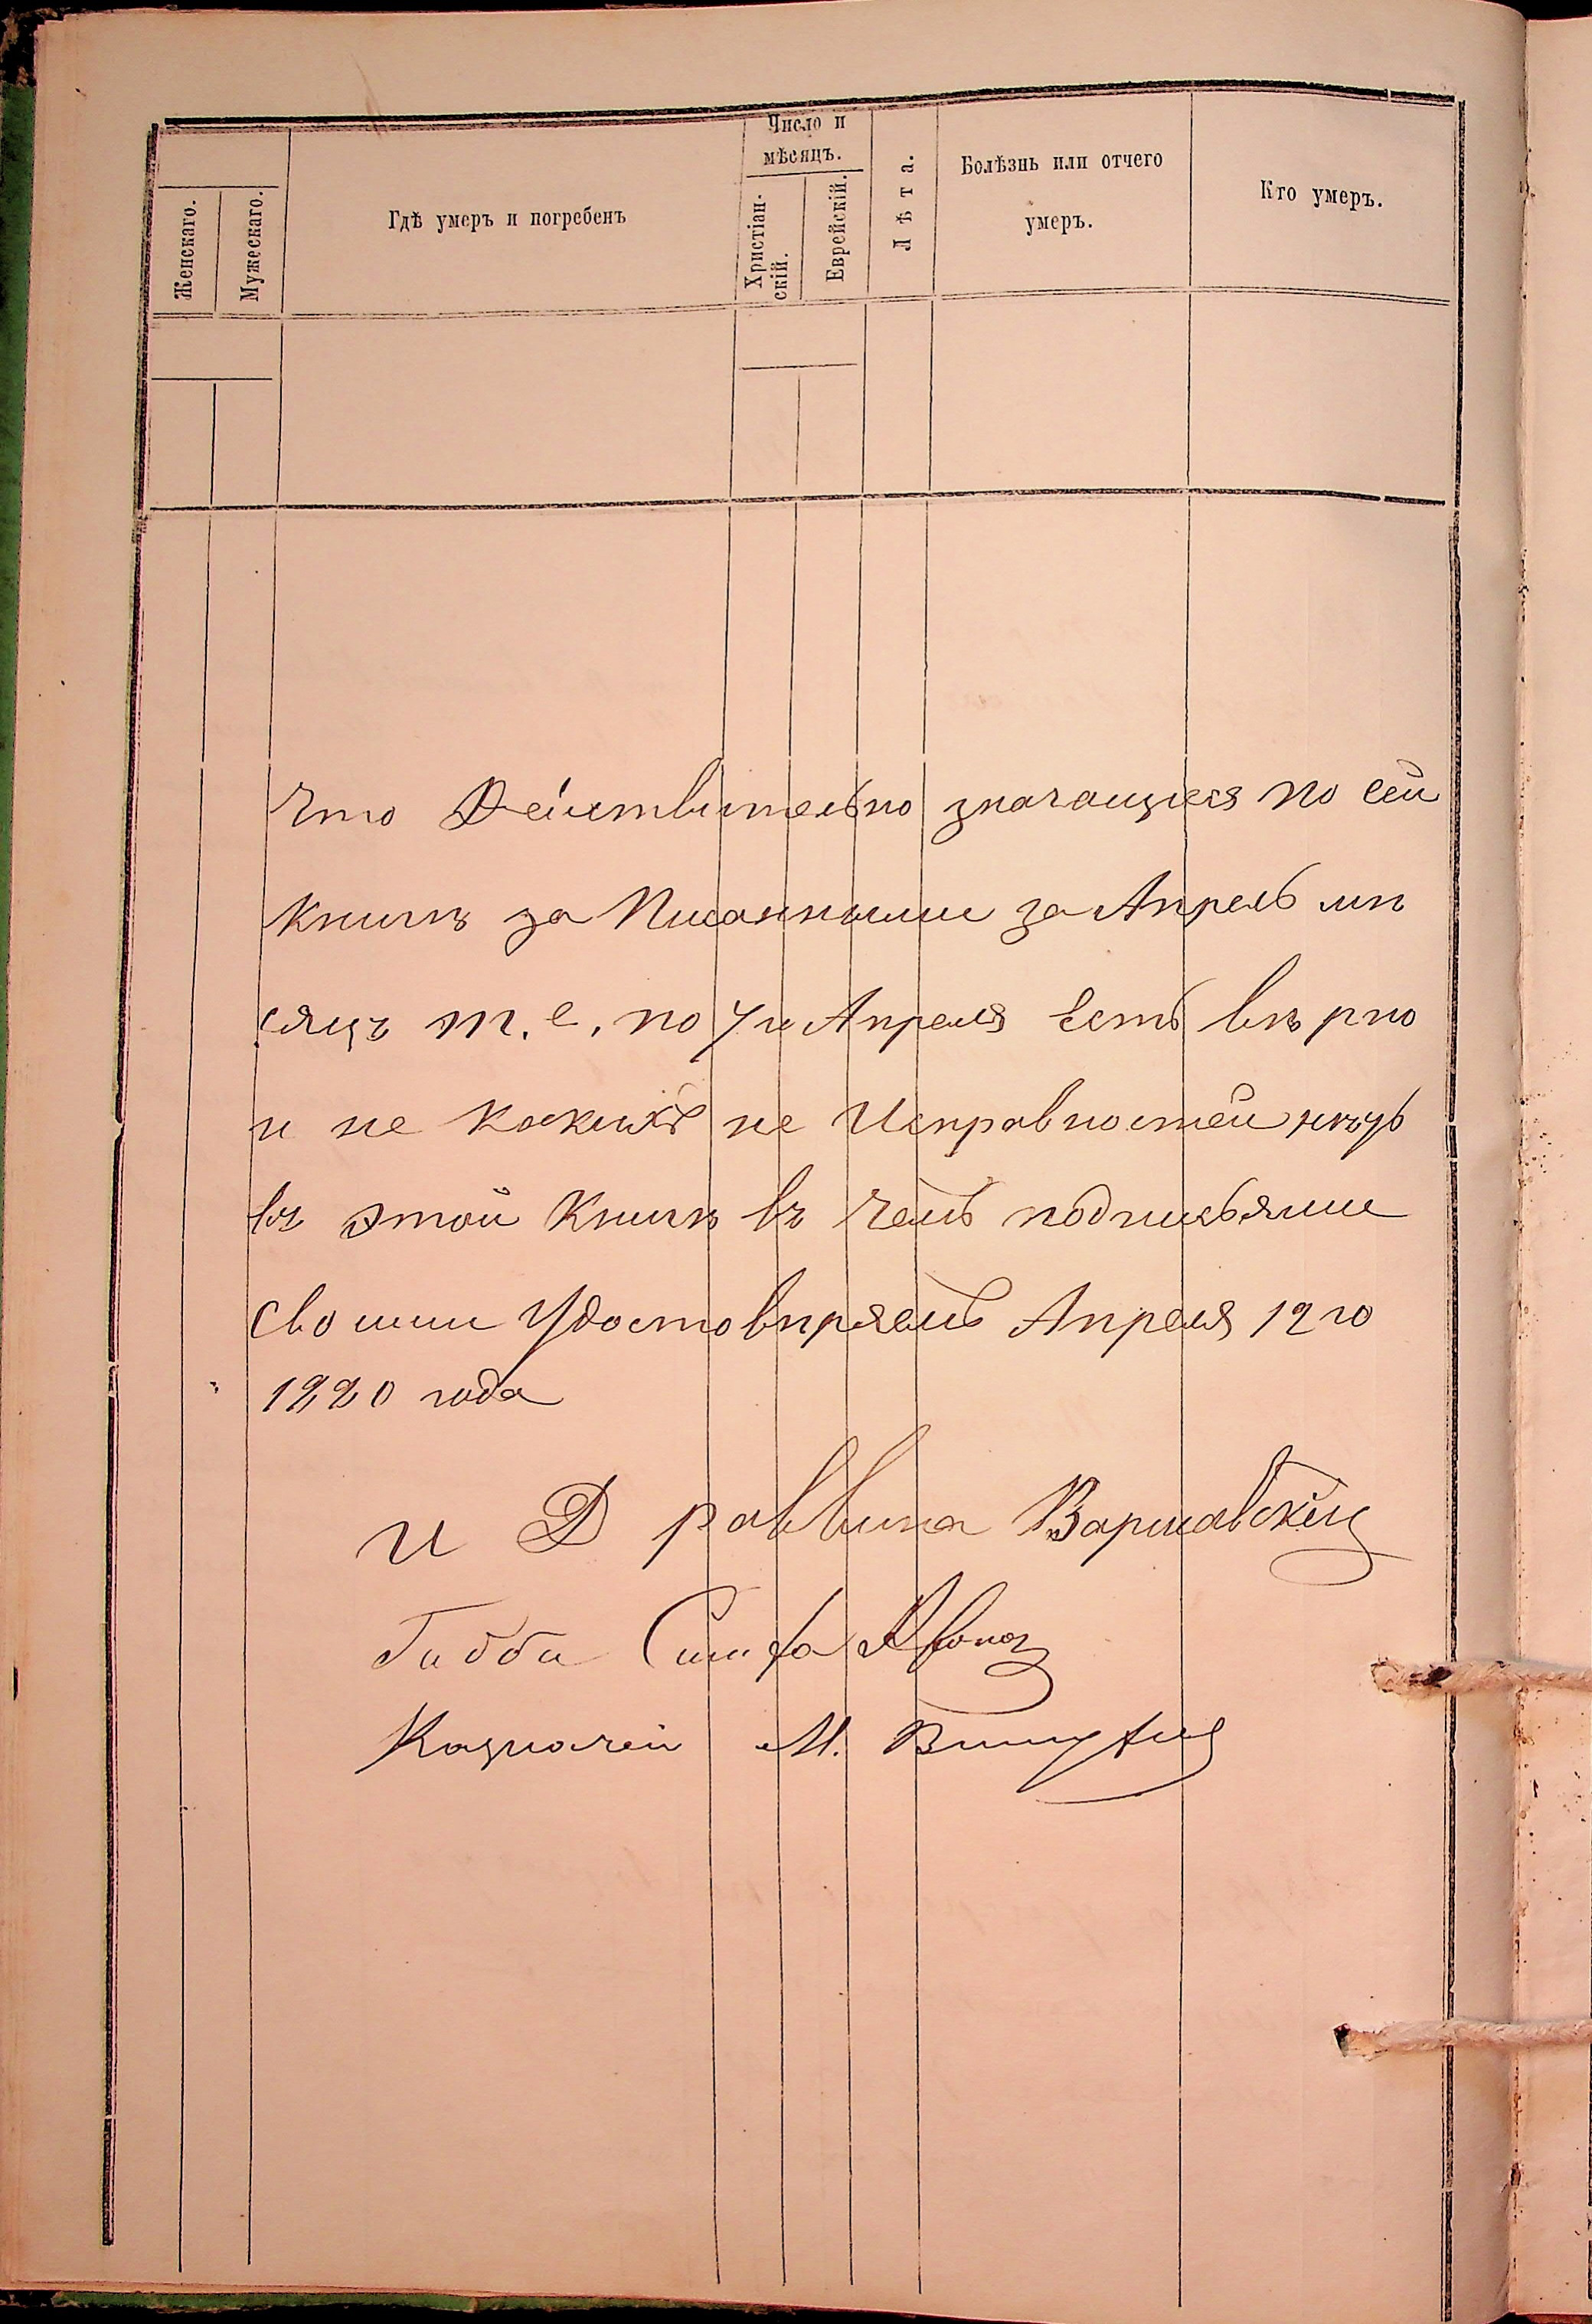 Женскаго.
Мужескаго.
Гдѣ умеръ и погребенъ
Число и
мѣсяцъ.
Христіан-
скій.
Еврейскій.
Лѣта.
Болѣзнь или отчего
умеръ.
Кто умеръ.
Что Действительно значащися по сей
Книгѣ за Писанными за Апрель мѣ
сяцъ т. е. по 7 и Апреля Есть вѣрно
и не какихъ не Исправностей нѣтъ
въ этой Книгѣ въ Чемъ подписьями
своими Удостовѣряемъ Апреля 12 го
1880 года
И Д раввина Варшавскій
Габби
Казначей М.